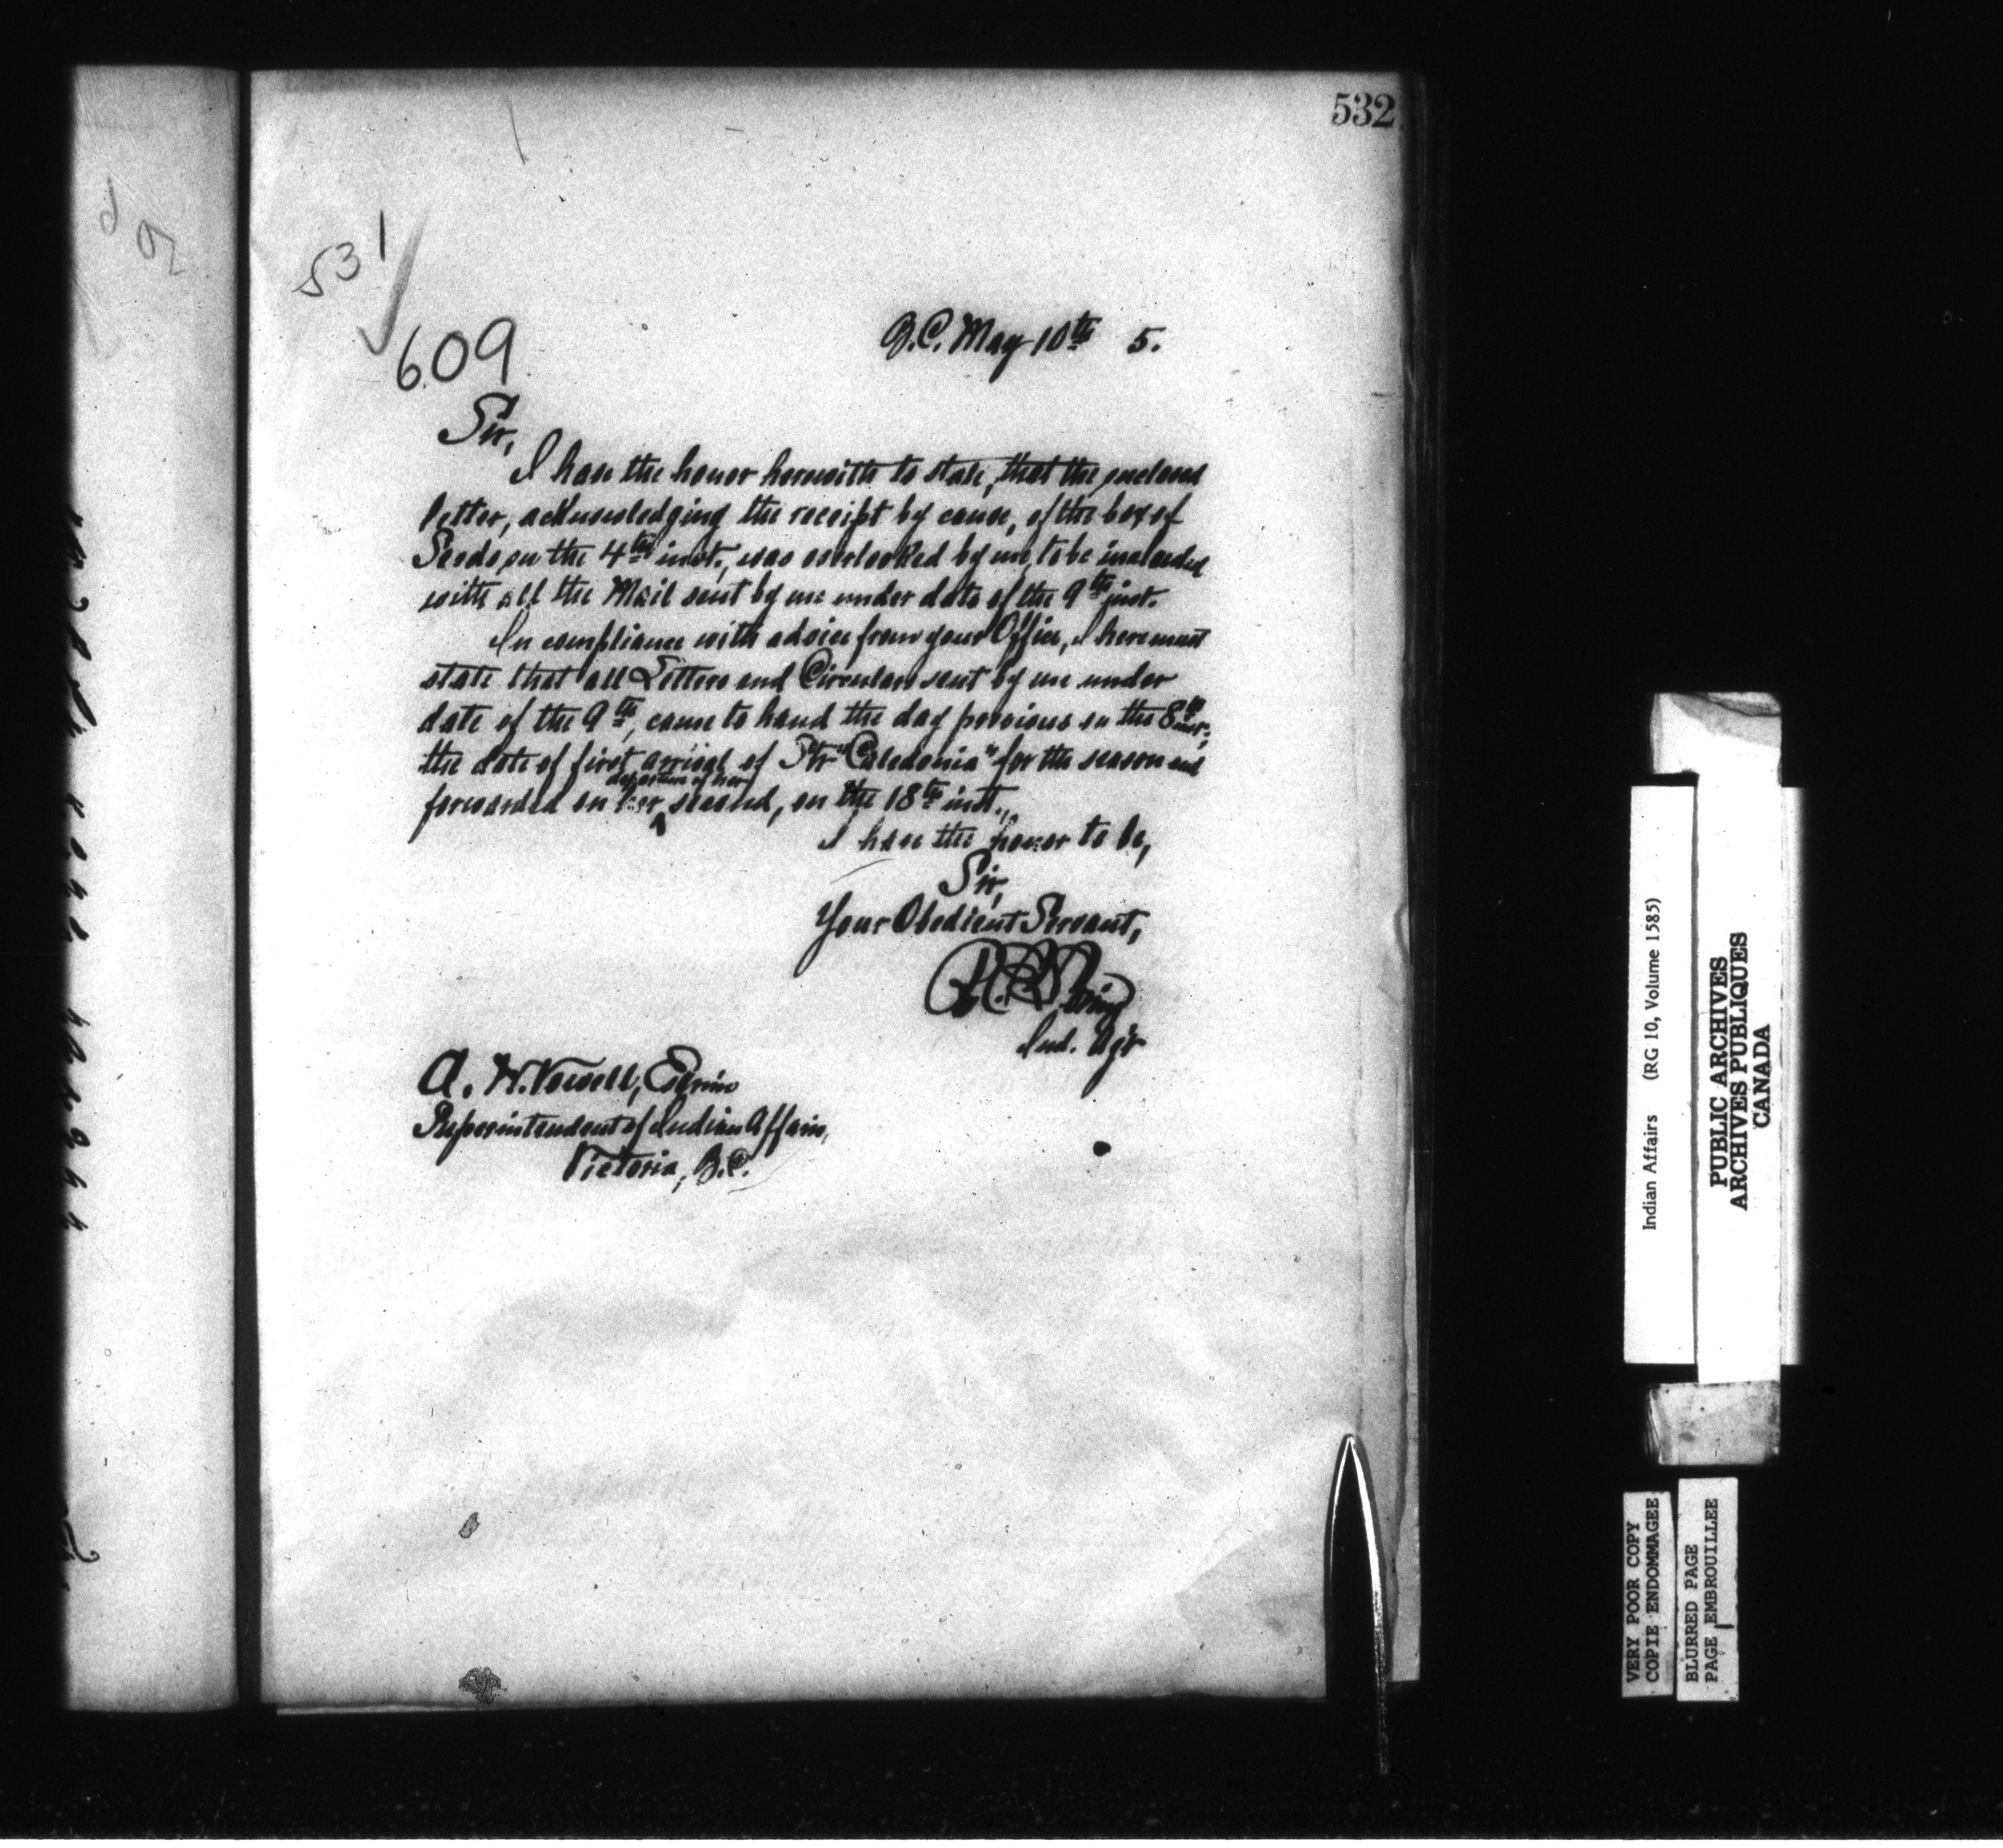 532
531
609
B.C. May 10th 5.
Sir,
I have the honor herewith to state, that the enclosed
letter, acknowledging the receipt by canoe, of the box of
Seeds on the 4th inst., was overlooked by me, to be included
with all the Mail sent by me under date of the 9th inst.
In compliance with advice from your Office, I here must
state that all Letters and Circulars sent by me under
date of the 9th, came to hand the day previous on the 8th inst.,
the date of first arrival of Str "Caledonia" for the season and
departure of her
forwarded on her second, on the 18th inst.,
I have the honor to be,
Sir,
Your Obedient Servant,
Ind. Agt
A. W. Vowell, Esquire
Superintendent of Indian Affairs,
Victoria, B.C.
Indian Affairs (RG 10, Volume 1585)
PUBLIC ARCHIVES
ARCHIVES PUBLIQUES
CANADA
VERY POOR COPY
COPIE ENDOMMAGEE
BLURRED PAGE
PAGE EMBROUILLEE